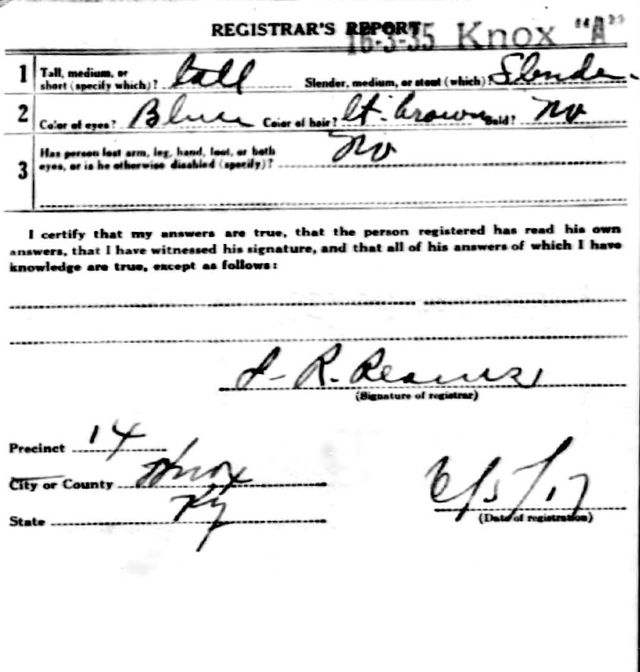 REGISTRAR'S REPORT
16-3-35 Knox "A"
1 Tall, medium, or short (specify which)? tall Slender, medium, or stout (which)? Slender
2 Color of eyes? Blue Color of hair? Lt. brown Bald? No
3 Has person lost arm, leg, hand, foot, or both
eyes, or is he otherwise disabled (specify)? No
I certify that my answers are true, that the person registered has read his own
answers, that I have witnessed his signature, and that all of his answers of which I have
knowledge are true, except as follows:
R.
(Signature of registrar)
Precinct 14
City or County Knox
State Ky
6/5/17
(Date of registration)